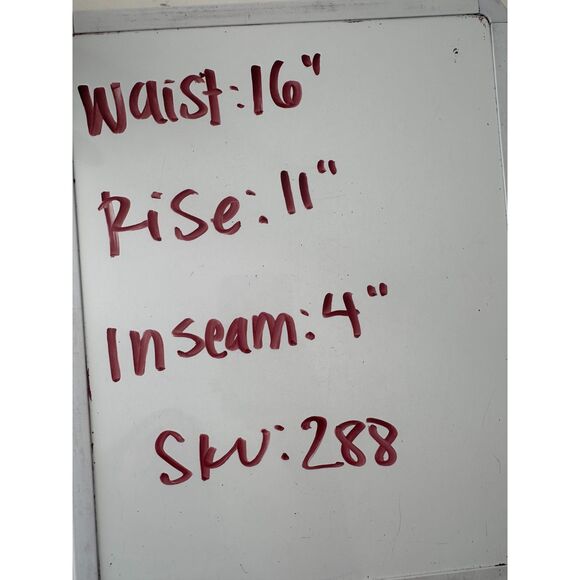 Waist: 16"
Rise: 11"
Inseam: 4"
SKU: 288